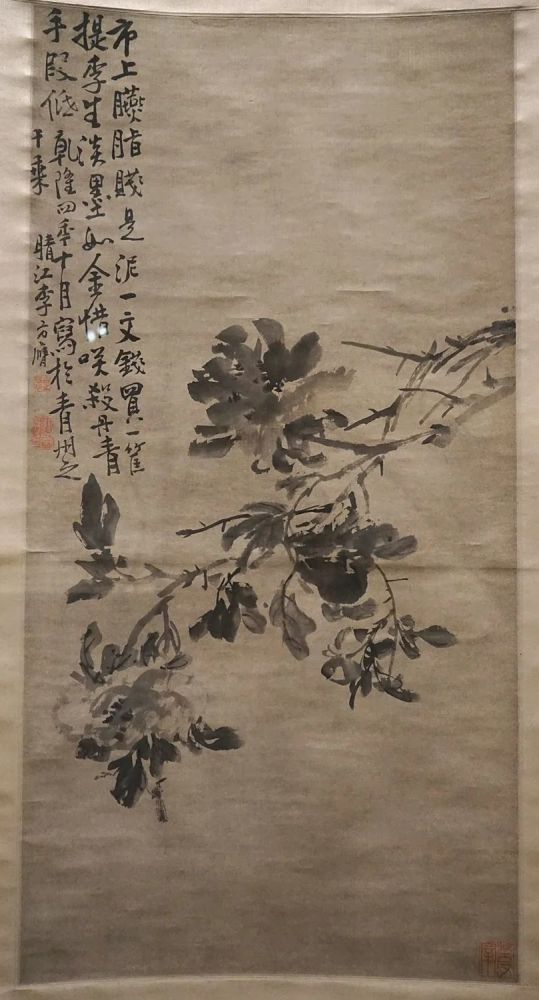 市上臙脂賤是泥一文錢買一筐
提李生淡墨如金惜咲殺丹青
手段低乾隆四年十月寫於青州之
千乘
晴江李方膺